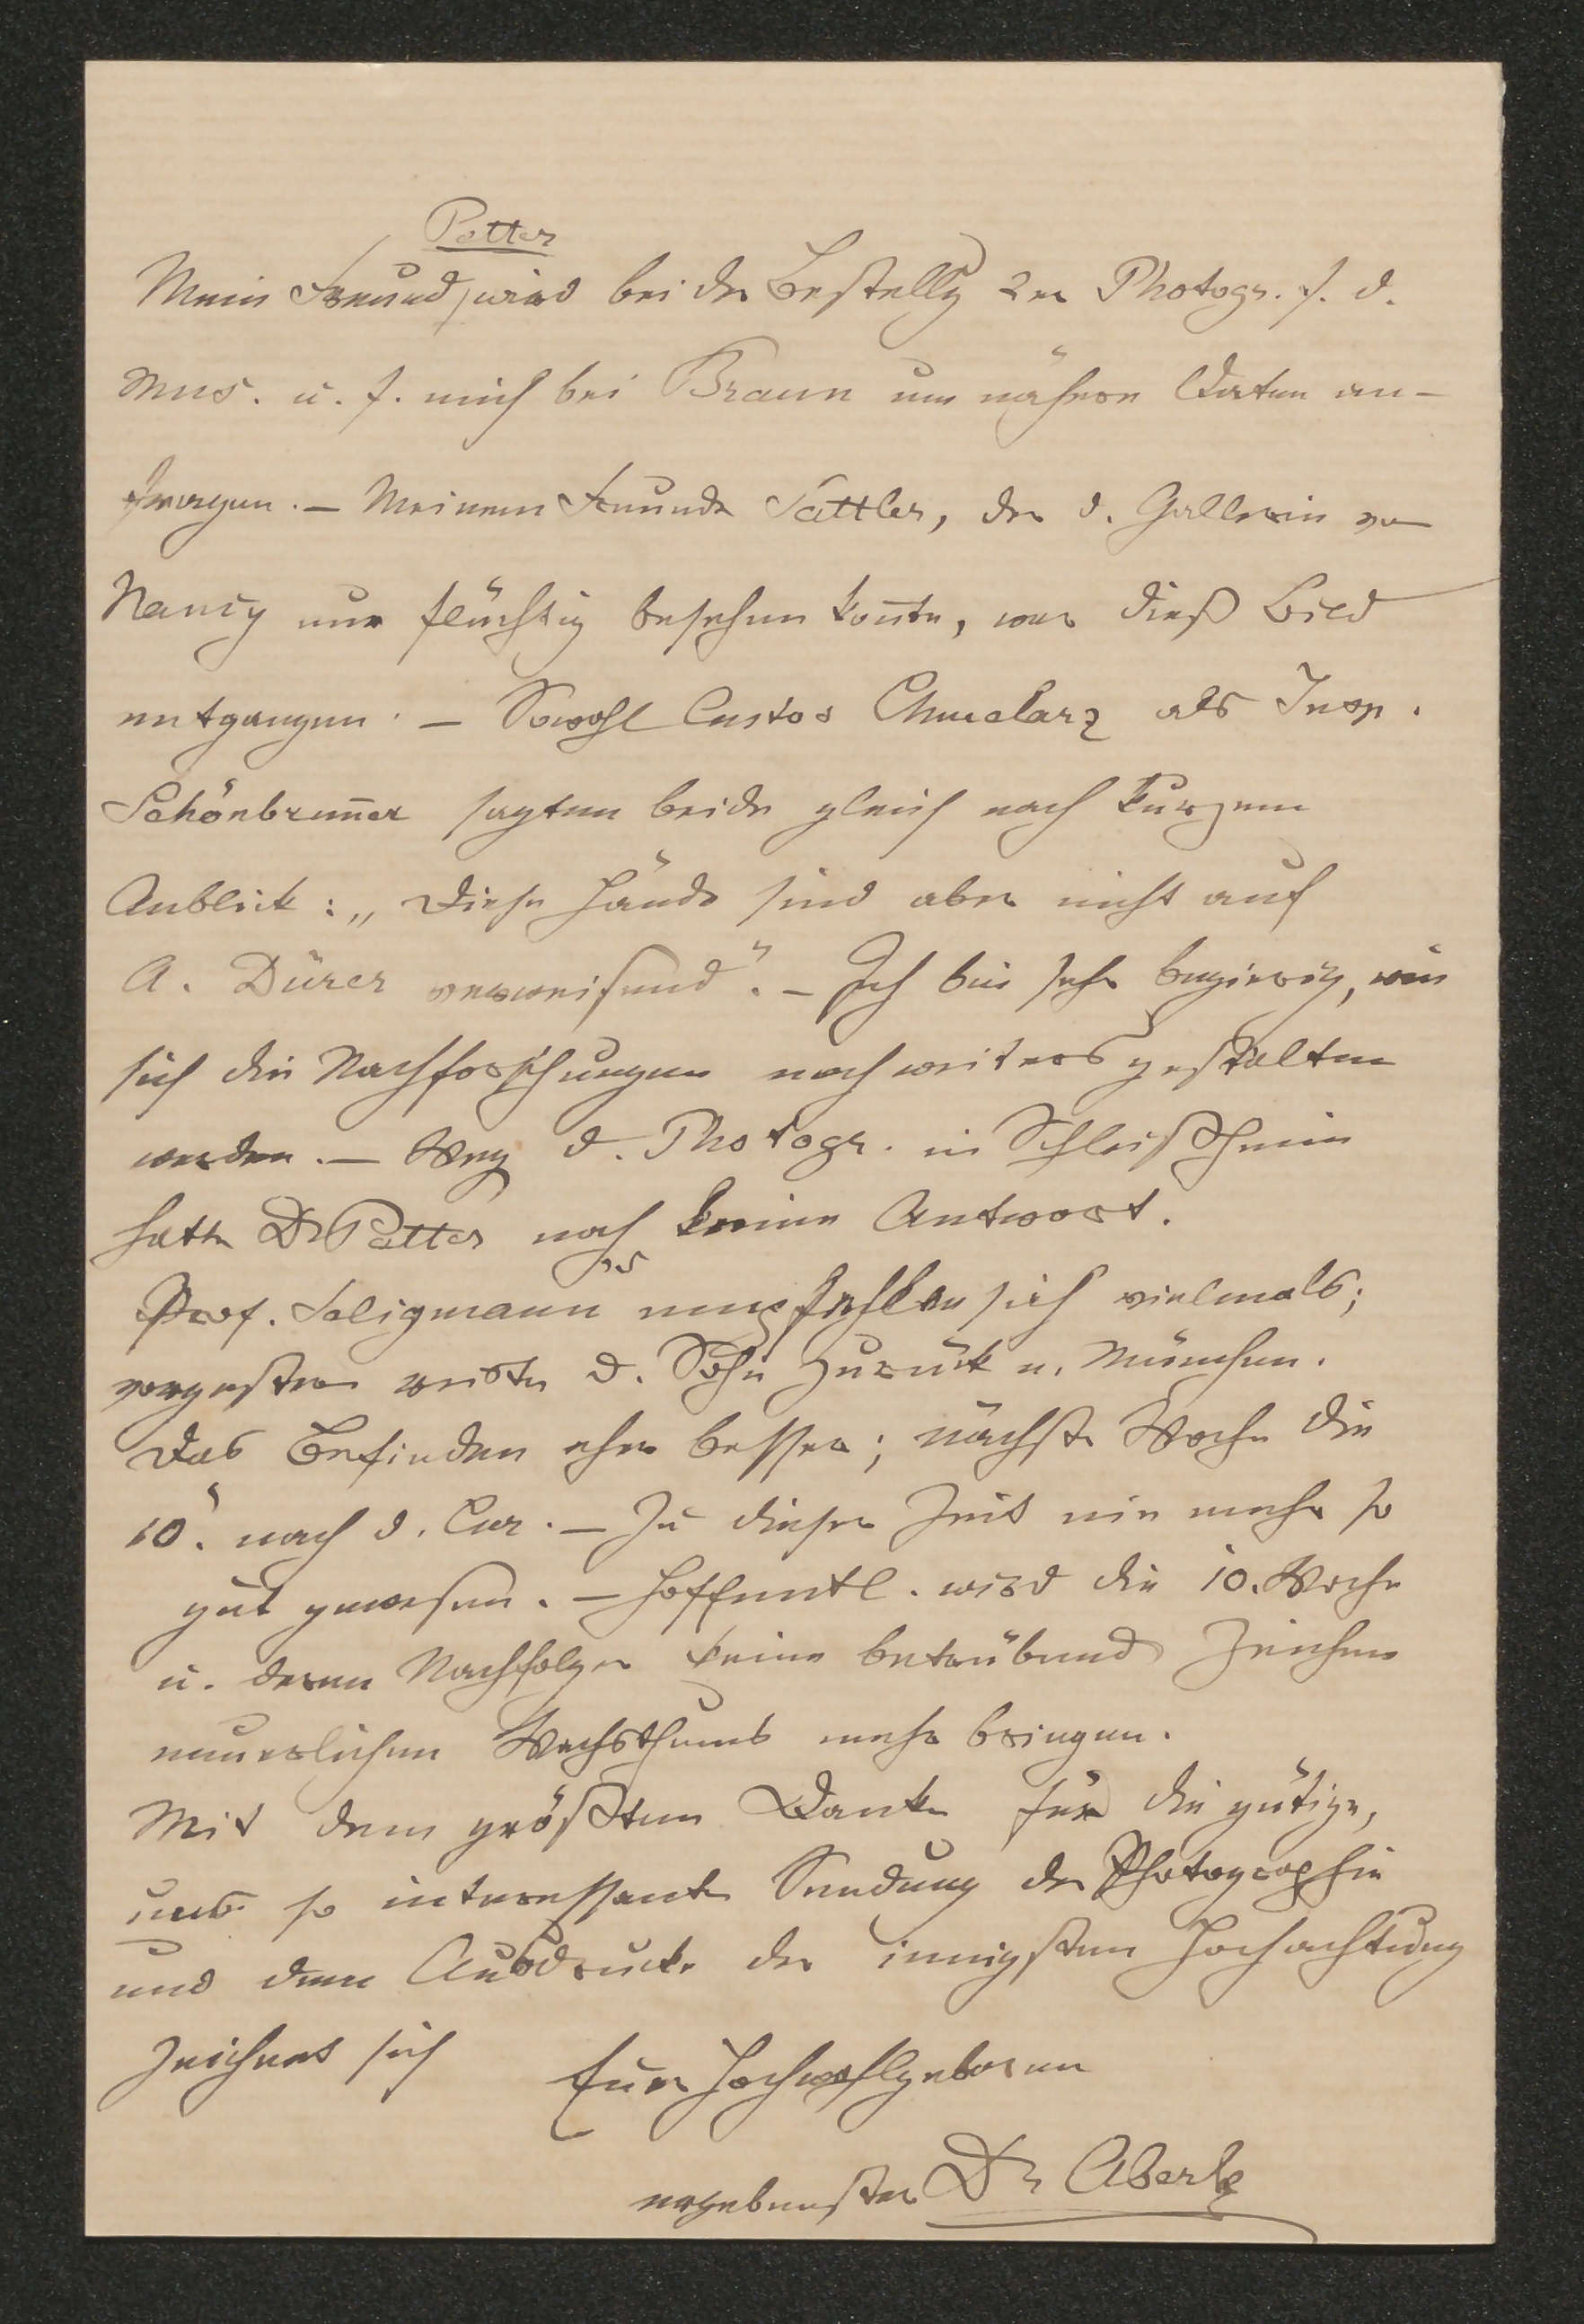 Petter
Mein Freund wird bei der Bestellg 2er Photogr. f. d.
Mus. u. f. mich bei Braun um nähere Daten an-
fragen. – Meinem Freunde Sattler, der d. Gallerie von
Nancy nur flüchtig besehen kon̄te, war dieß Bild
entgangen. – Sowohl Custos Chmelarz als Insp.
Schönbrun̄er sagten beide gleich nach kurzem
Anblick: „Diese Hände sind aber nicht auf
A. Dürer verweisend". – Ich bin sehr begierig, wie
sich die Nachforschungen noch weiters gestalten
werden. – Weg d. Photogr. in Schleißheim
hatte Dr Petter noch keine Antwort.
Prof. Seligmann empfehlen sich vielmals;
vorgestern reiste d. Sohn zurück n. München.
Das Befinden eher besser; nächste Woche die
10. nach d. Cur. – Zu dieser Zeit nie mehr so
gut gewesen. – Hoffentl. wird die 10. Woche
u. deren Nachfolger keine betrübend Zeichen
neuerlichen Wachsthums mehr bringen.
Mit dem größten Danke für die gütige,
uns so interessante Sendung der Photographie
und dem Ausdrucke der innigsten Hochachtung
zeichnet sich Euer Hochwohlgeboren
ergebenster Dr Aberle